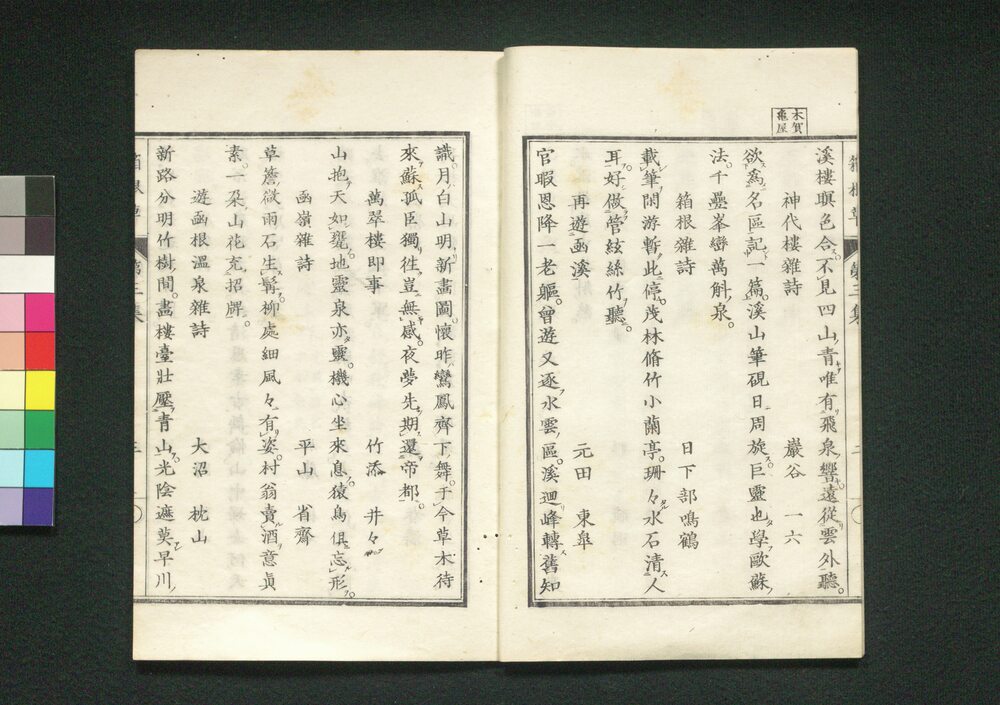 木賀
亀屋
溪樓暝色合。不見四山青。唯有飛泉響。遠從雲外聽。
神代樓雜詩 巖谷 一六
欲爲名區記一篇。溪山筆硯日周旋。巨靈也學歐蘇
法。千疊峯巒萬斛泉。
箱根雜詩 日下部鳴鶴
載筆閑游暫此停。茂林脩竹小蘭亭。珊々水石清人
耳。好做管絃絲竹聽。
再遊函溪 元田 東皐
官暇恩降一老軀。曾遊又逐水雲區。溪迴峰轉舊知
識。月白山明新畫圖。懷昨鸞鳳齊下舞。于今草木待
來蘇。孤臣獨徃豈無感。夜夢先期還帝都。
萬翠樓即事 竹添 井々
山抱天如甕。地靈泉亦靈。機心坐來息。猿鳥俱忘形。
函嶺雜詩 平山 省齋
草簷微雨石生髯。柳處細風々有姿。村翁賣酒意眞
素。一朶山花充招牌。
遊函根溫泉雜詩 大沼 枕山
新路分明竹樹間。畵樓臺壯壓青山。光陰遮莫早川
第三集